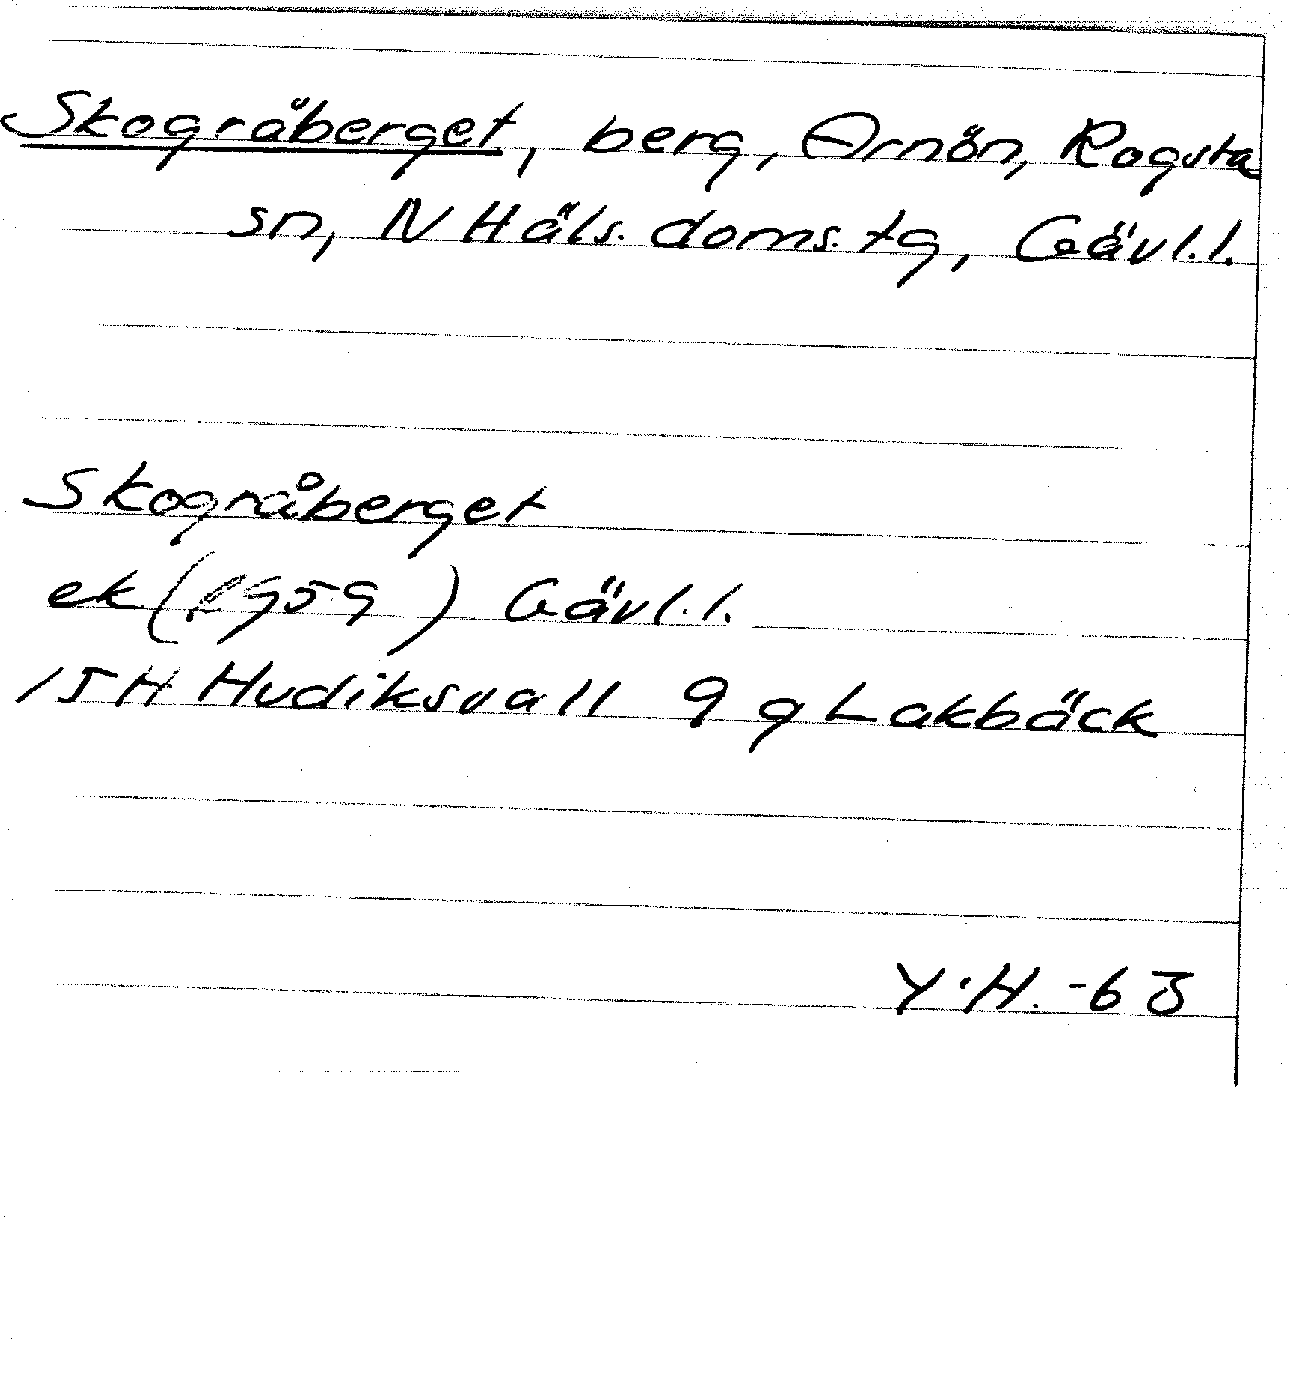 Skogråberget, berg, Arnön, Rogsta
sn, N Häls. doms. tg, Gävl.l.
Skogråberget
ek (1959) Gävl.l.
15H Hudiksvall 9 g Lakbäck
Y.H. -65